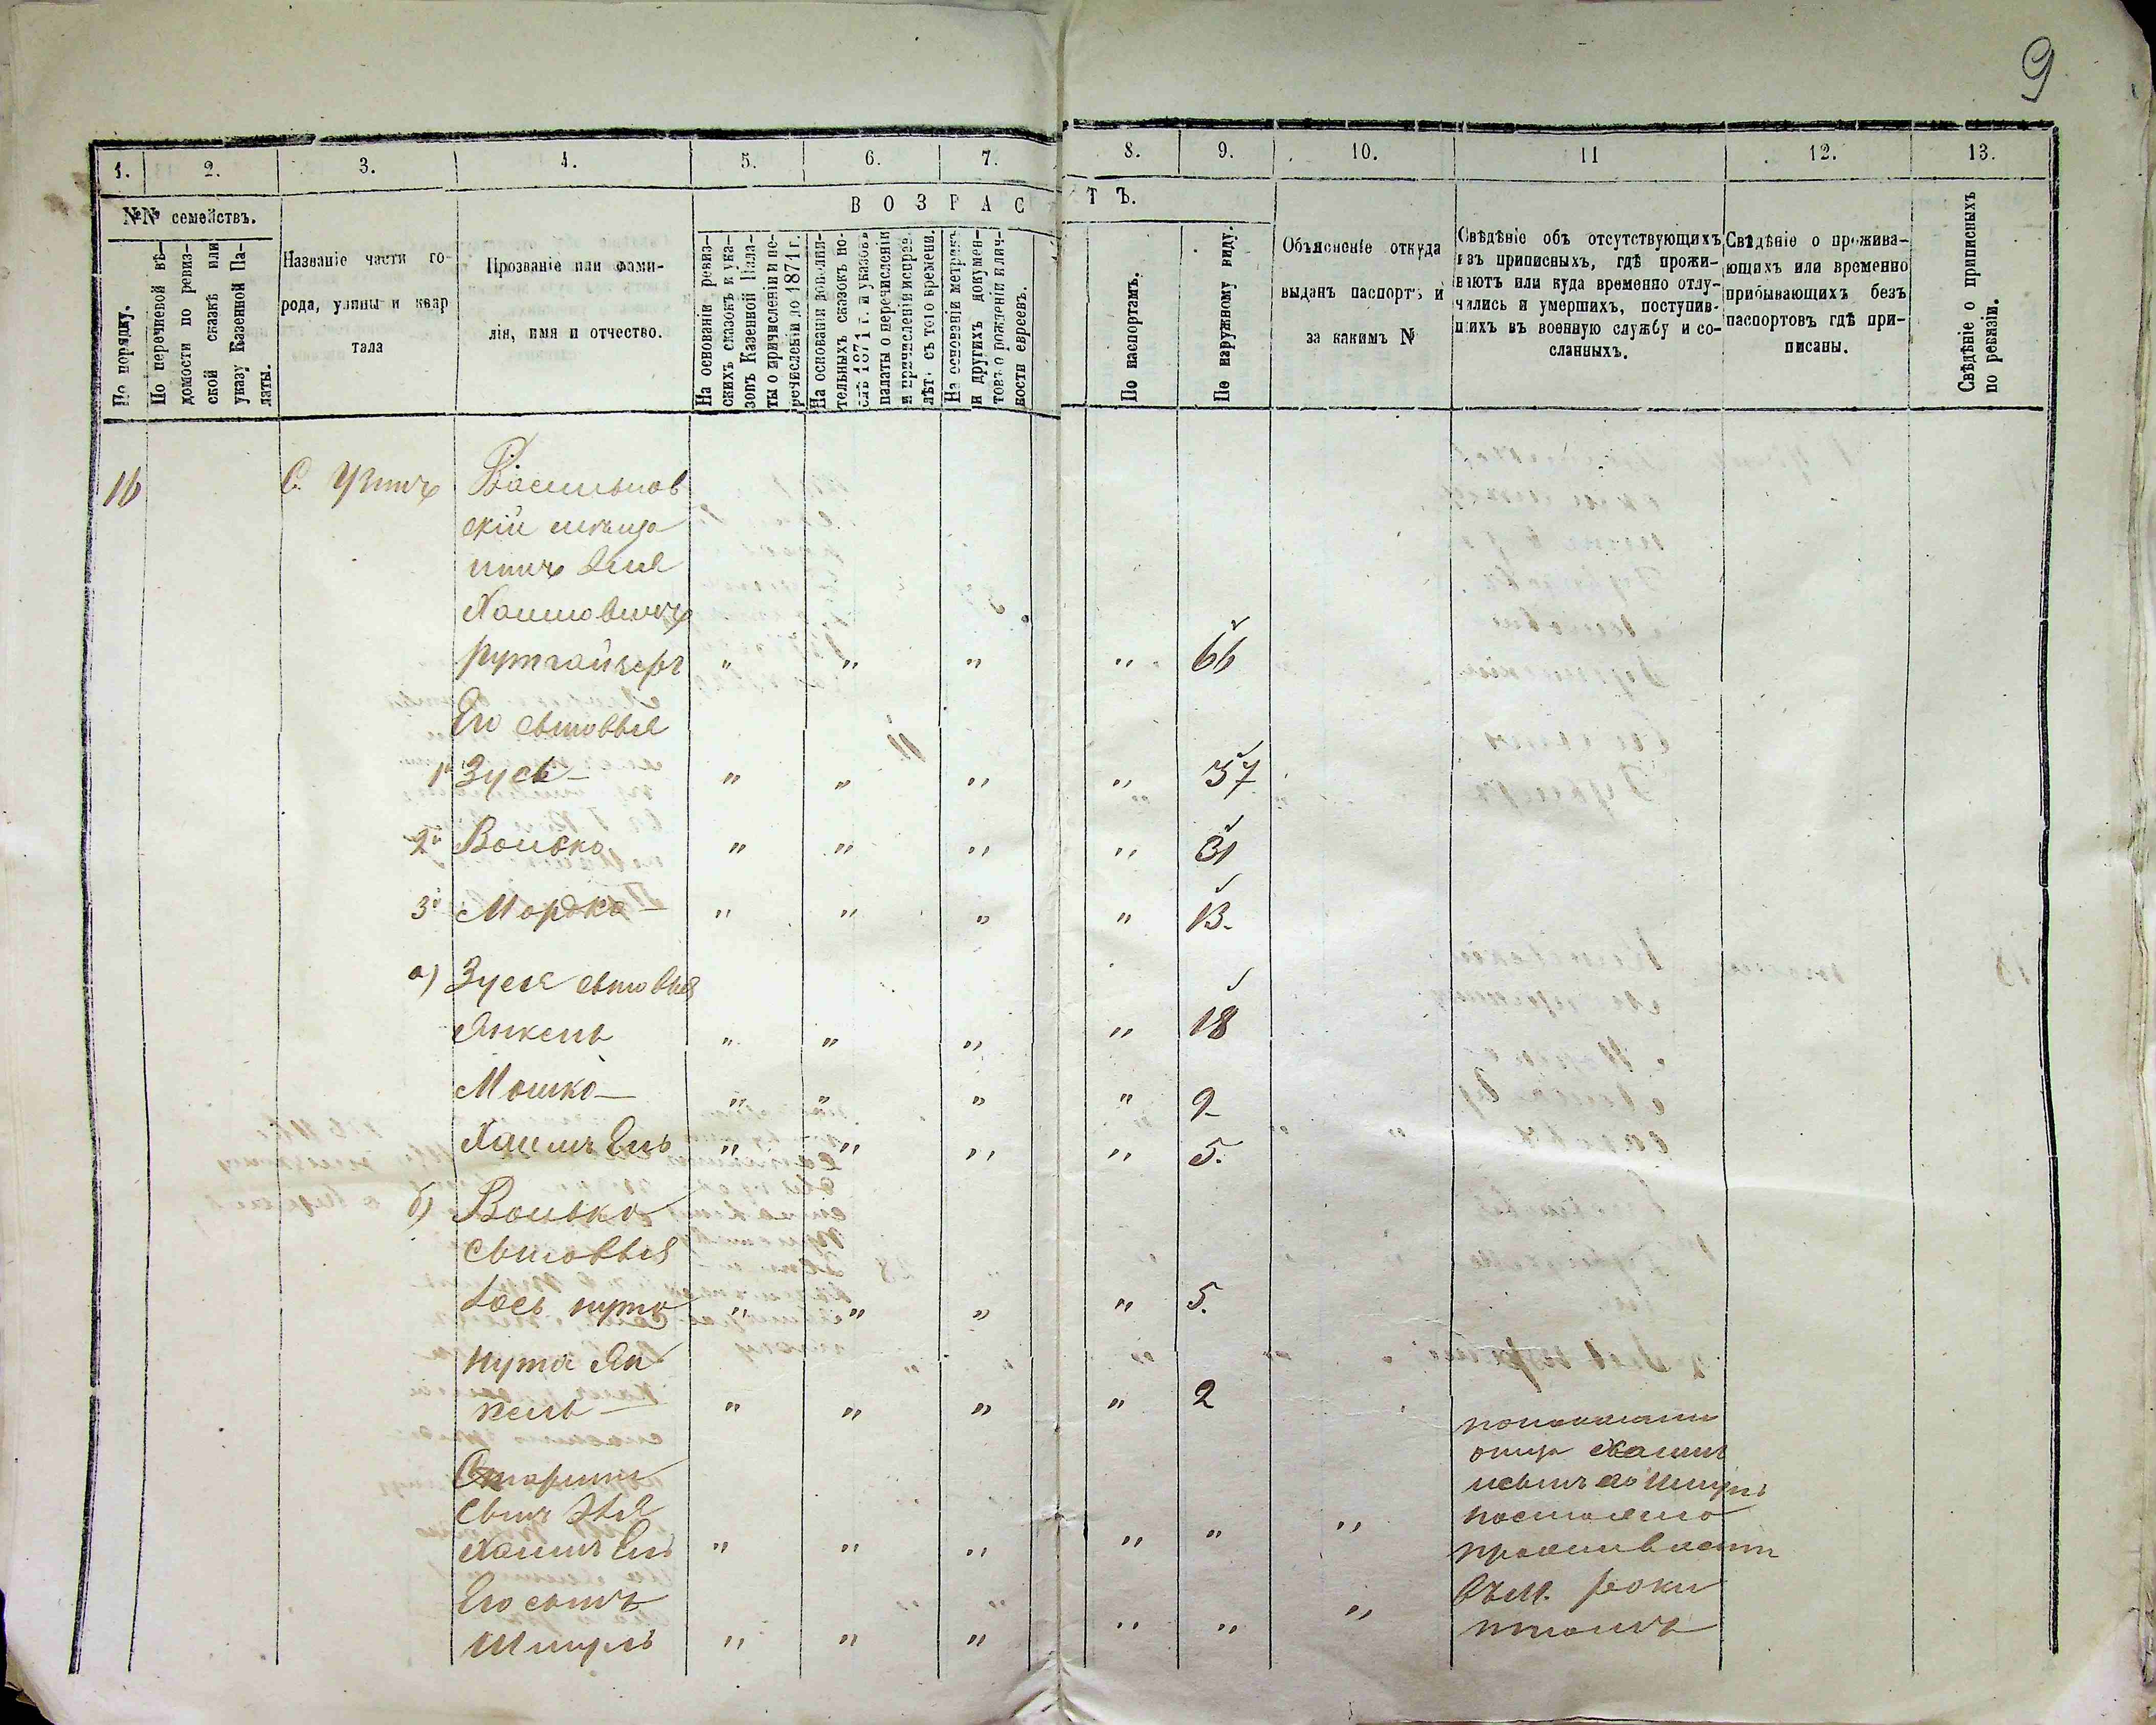 9
1. 2. 3. 4. 5. 6. 7. 8. 9. 10. 11 12. 13.
№№ семействъ.
По порядку.
По перечневой вѣ-
домости по ревиз-
ской сказкѣ или
указу Казенной Па-
латы.
Названіе части го-
рода, улицы и квар
тала
Прозваніе или фами-
лія, имя и отчество.
ВОЗРАСТЪ.
На основаніи ревиз-
скихъ сказокъ и ука-
зовъ Казенной Пала-
ты о причисленіи и пе-
речисленіи до 1871 г.
На основаніи дополни-
тельныхъ сказокъ по-
слѣ 1871 г. и указовъ
палаты о перечисленіи
и причисленіи исправ.
лѣтъ съ того времени.
На основаніи метрикъ
и другихъ докумен-
товъ о рожденіи и лич-
ности евреевъ.
По паспортамъ.
По наружному виду.
Объясненіе откуда
выданъ паспортъ и
за какимъ №
Свѣдѣніе объ отсутствующихъ
изъ приписныхъ, гдѣ прожи-
ваютъ или куда временно отлу-
чились и умершихъ, поступив-
шихъ въ военную службу и со-
сланныхъ.
Свѣдѣніе о прожива-
ющихъ или временно
прибывающихъ безъ
паспортовъ гдѣ при-
писаны.
Свѣдѣніе о приписныхъ
по ревизіи.
16 С. Узинъ Васильков
скій мѣща
нинъ
Хаимовичъ
Рутгайзеръ " " " " 66
Его сыновья
1й Зусь " " " " 37
2й Волько " " " " 31
3й Мордко " " " " 13.
а) Зуся сыновья
Янкель " " " " 18
Мошко " " " " 9
Хаимъ Ель " " " " 5.
б) Волько
сыновья
Іось Нута " " " " 5.
Нута Ян
кель " " " " 2
показанію
отца Хаимъ
Старшій
сынъ
съ сыномъ Шмулъ
постоянно
Хаимъ Ель " " " " " "
проживаютъ
Его сынъ
въ м. Роки
Шмуль " " " " " "
тномъ